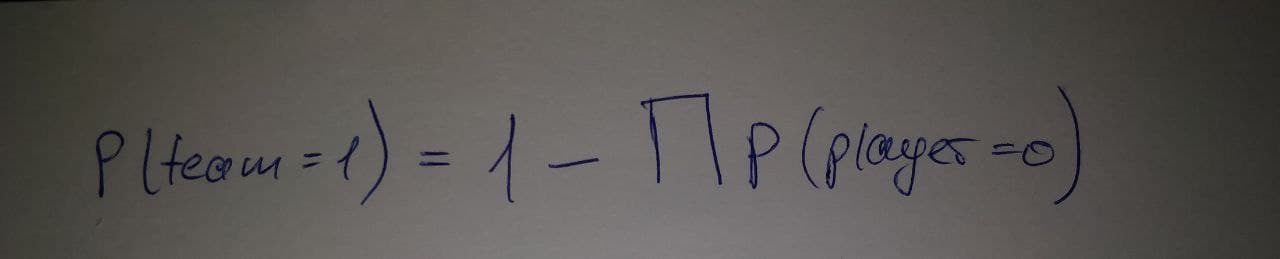 P(team = 1) = 1 - ∏ P(player = 0)